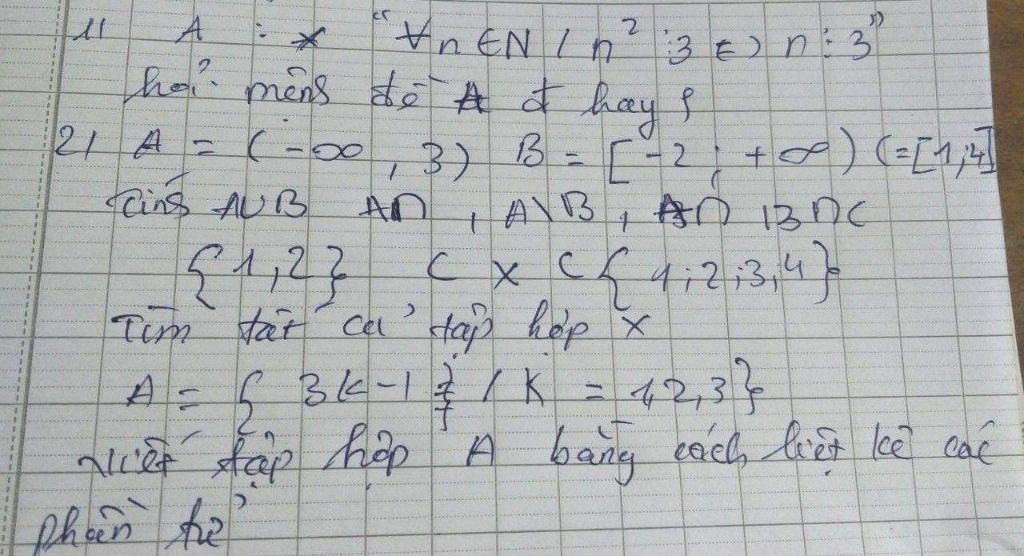 1) A : "∀n ∈ N / n² ⋮ 3 ⇔ n ⋮ 3"
hỏi mệnh đề A đ hay s
2) A = (-∞, 3) B = [-2; +∞) C = [1; 4]
Tính A∪B A∩ , A\B, A∩ B∩C
{1, 2} ⊂ X ⊂ {1; 2; 3, 4}
Tìm tất cả tập hợp X
A = { 3k - 1 / K = 1, 2, 3}
viết tập hợp A bằng cách liệt kê các
phần tử